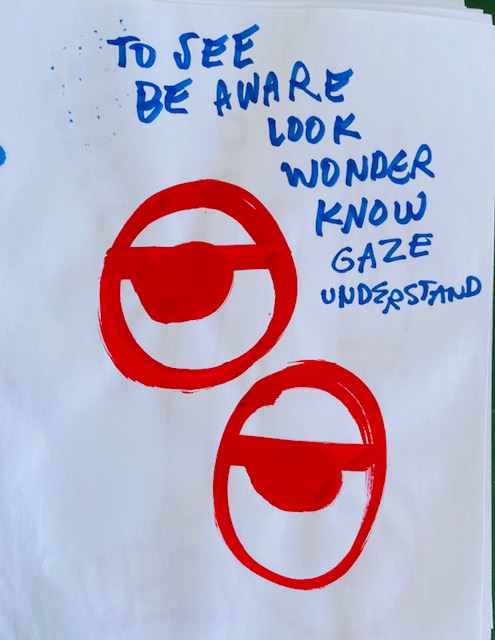 TO SEE
BE AWARE
LOOK
WONDER
KNOW
GAZE
UNDERSTAND